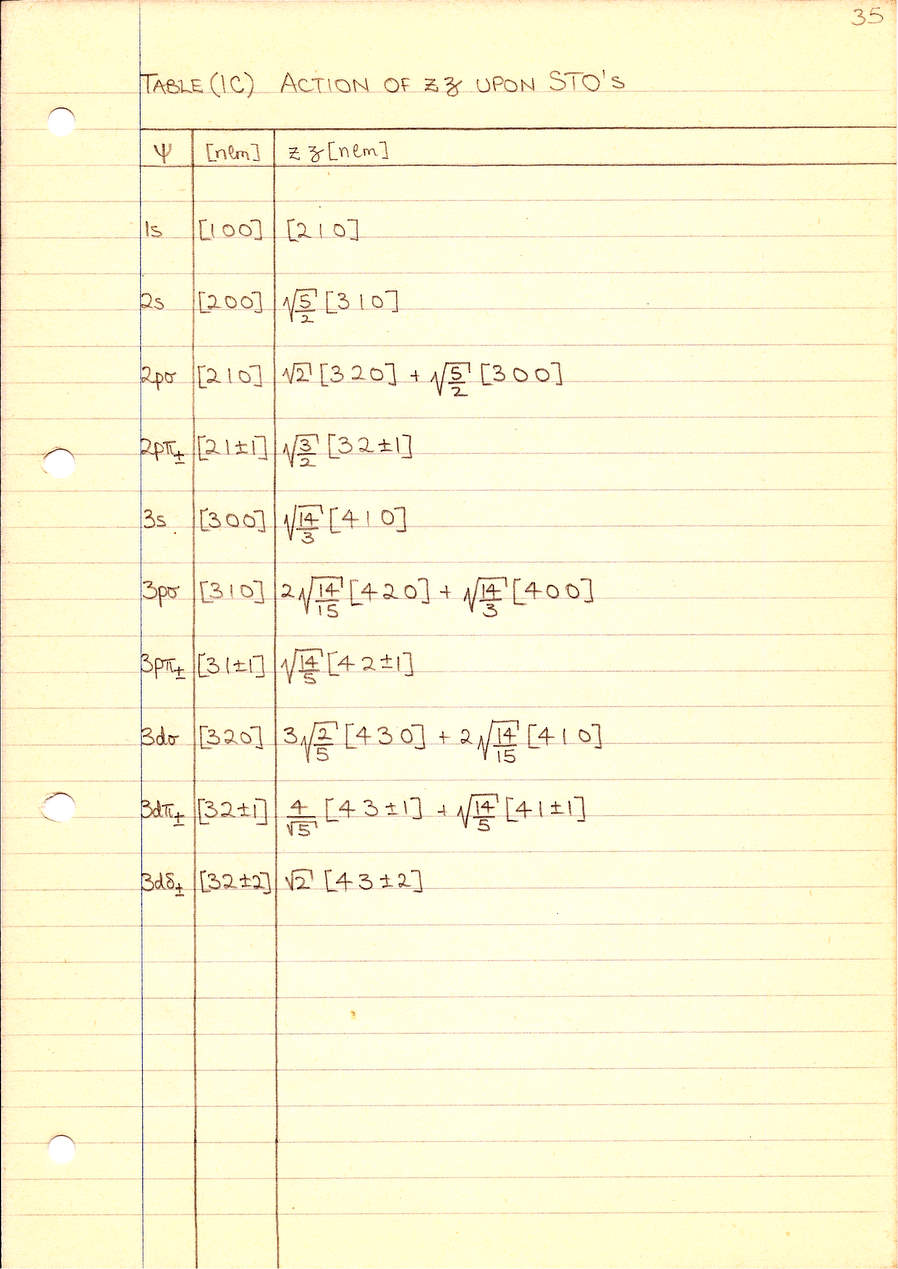 35
TABLE (1C) ACTION OF z ʒ UPON STO'S
Ψ [nlm] z ʒ [nlm]
1s [100] [210]
2s [200] √(5/2) [310]
2pσ [210] √2 [320] + √(5/2) [300]
2pπ± [21±1] √(3/2) [32±1]
3s [300] √(14/3) [410]
3pσ [310] 2√(14/15) [420] + √(14/3) [400]
3pπ± [31±1] √(14/5) [42±1]
3dσ [320] 3√(2/5) [430] + 2√(14/15) [410]
3dπ± [32±1] 4/√5 [43±1] + √(14/5) [41±1]
3dδ± [32±2] √2 [43±2]